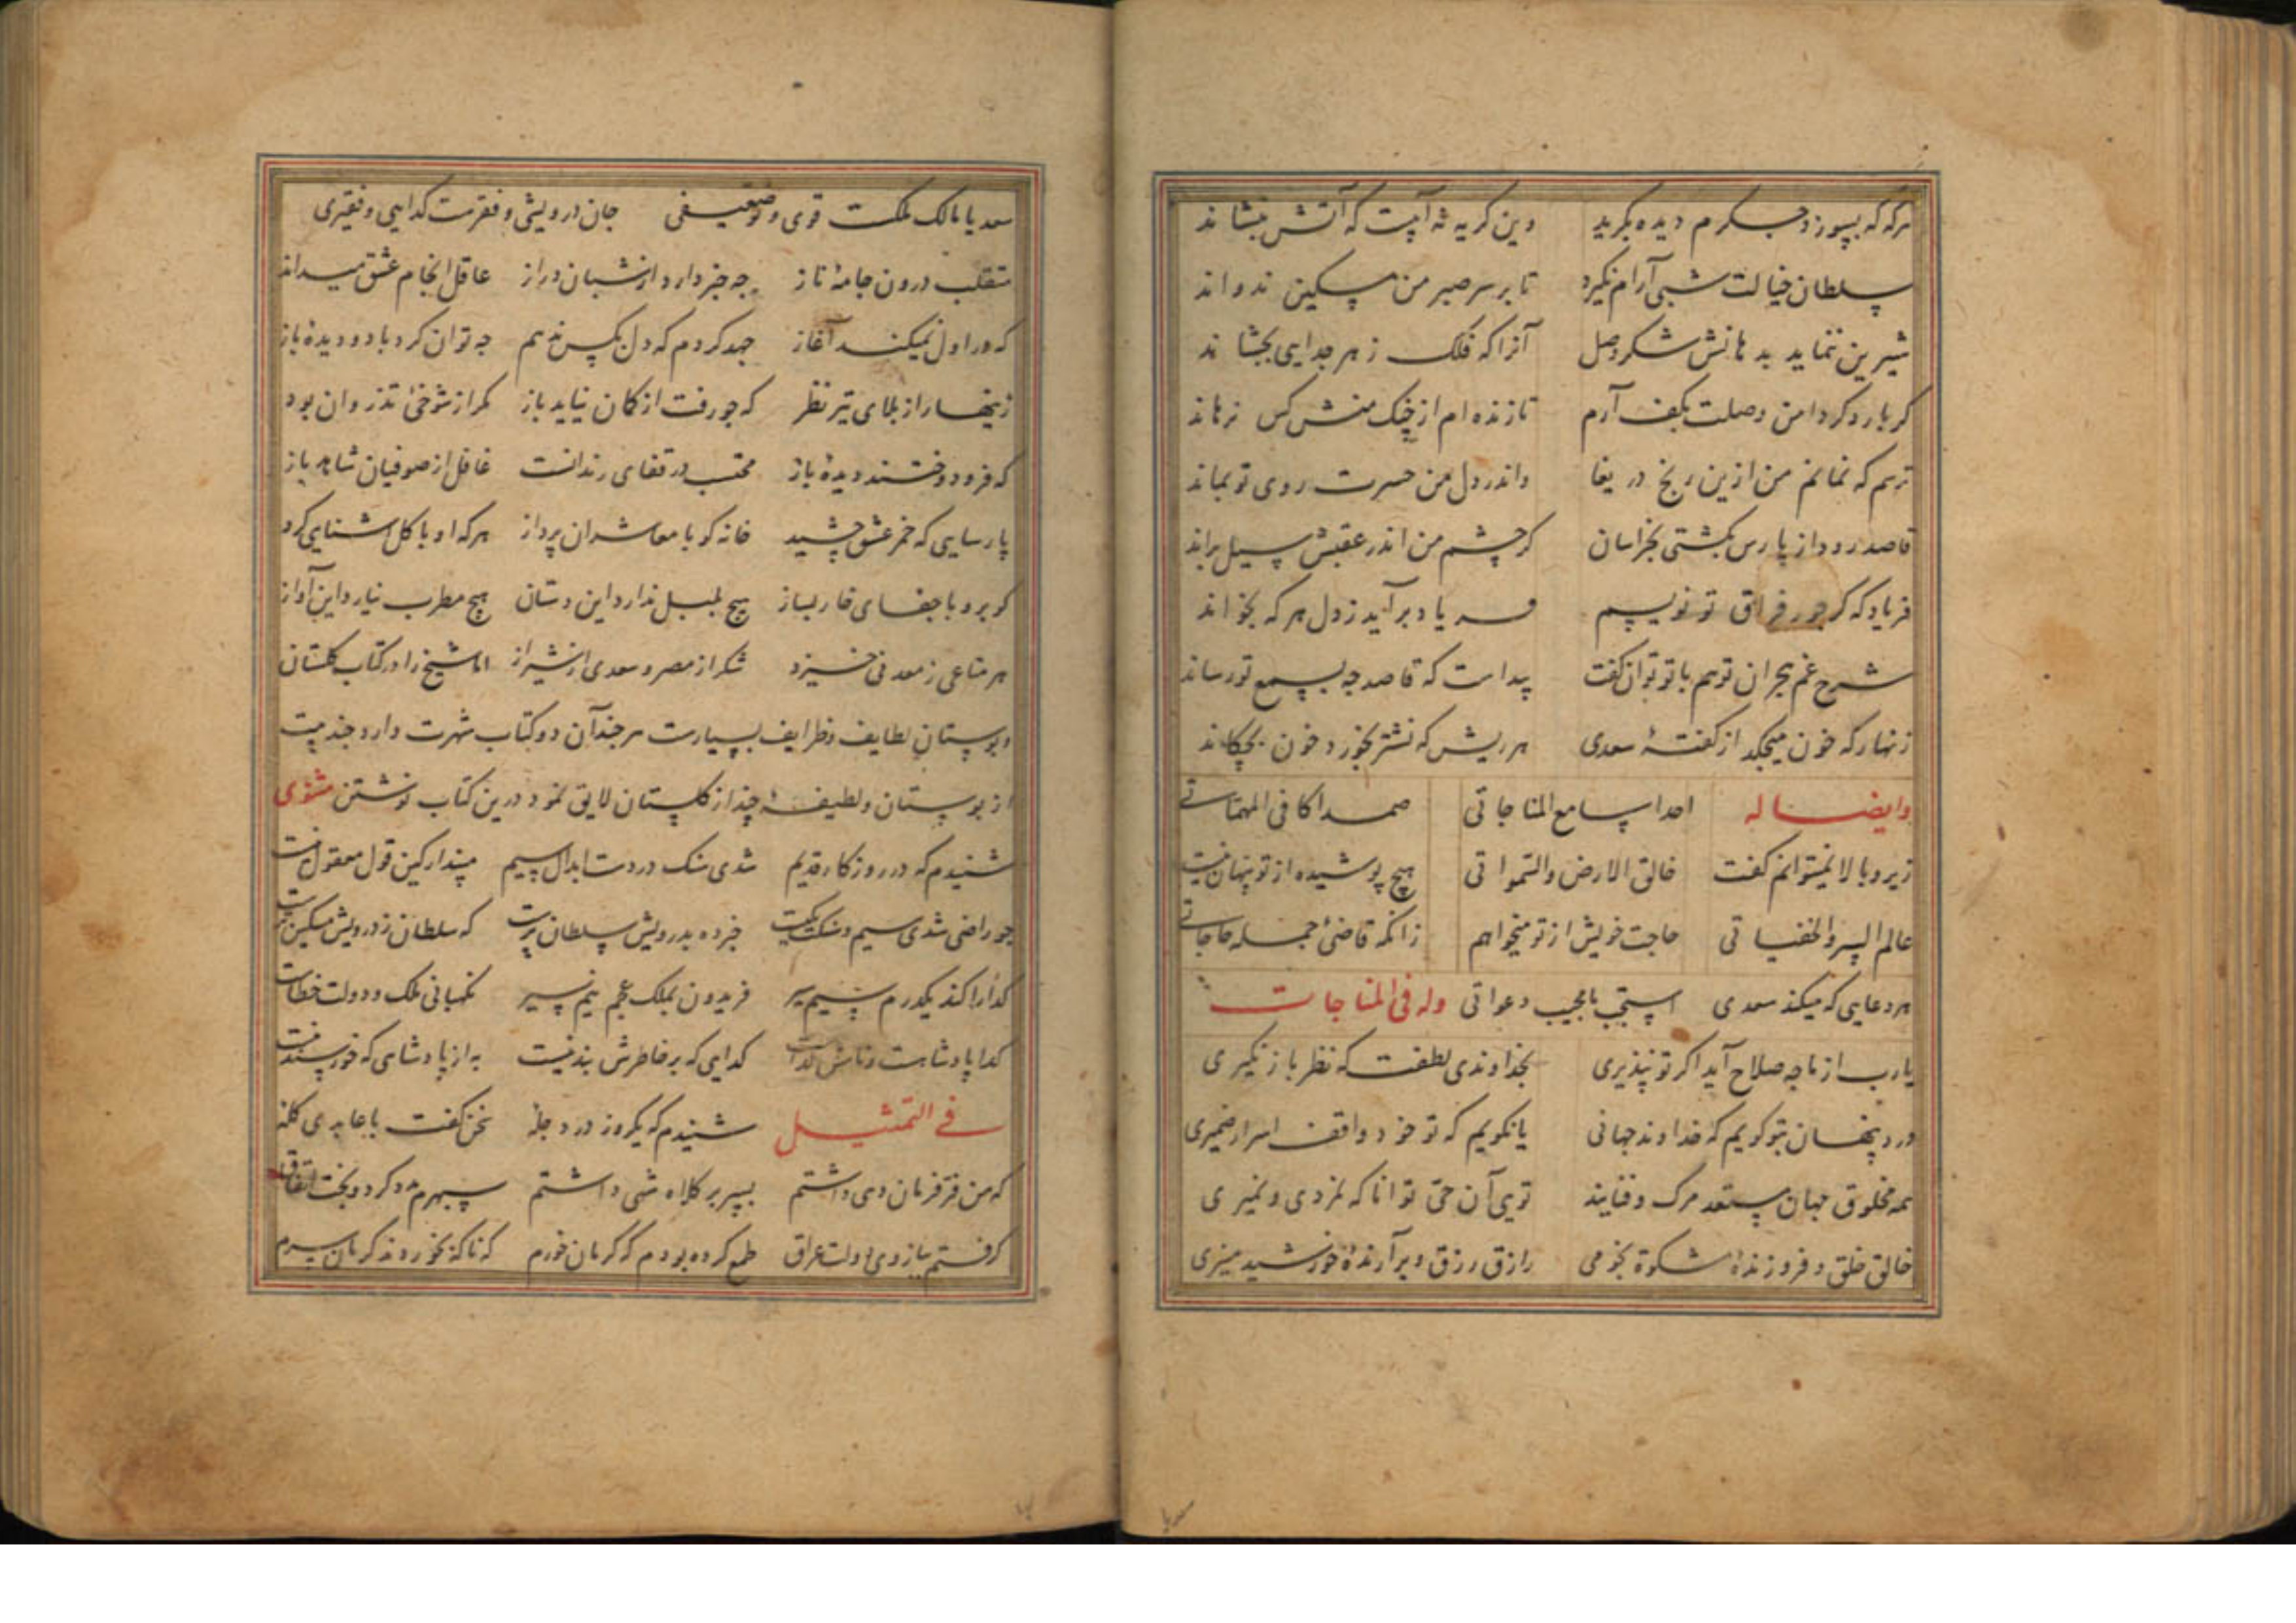 هرگه که بسوزد جگرم دیده بگرید وین گریه نه آبیست که آتش بنشاند
سلطان خیالت شبی آرام نگیرد تا بر سر صبر من مسکین ندواند
شیرین ننماید بدهانش شکر وصل آنرا که فلک زهر جدایی بچشاند
گر بار دگر دامن وصلت بکف آرم تا زنده ام از چنگ منش کس نرهاند
ترسم که نمانم من ازین رنج دریغا واندر دل من حسرت روی تو بماند
قاصد رود از پارس بکشتی بخراسان گر چشم من اندر عقبش سیل براند
فریاد که گر جور فراق تو نویسم فریاد برآید ز دل هر که بخواند
شرح غم هجران تو هم با تو توان گفت پیداست که قاصد چه بسمع تو رساند
زنهار که خون میچکد از گفتهٔ سعدی هر ریش که نشتر بخورد خون بچکاند
وایضا له احدا سامع المناجاتی صمدا کافی المهماتی
زیر و بالا نمیتوانم گفت خالق الارض والسمواتی هیچ پوشیده از تو پنهان نیست
عالم السر والخفیاتی حاجت خویش از تو میخواهم زانکه قاضئ جمله حاجاتی
هر دعایی که میکند سعدی استجب یا مجیب دعواتی وله فی المناجات
یارب از ما چه صلاح آید اگر تو نپذیری بخداوندی لطفت که نظر باز نگیری
درد پنهان بتو گویم که خداوند جهانی یا نگویم که تو خود واقف اسرار ضمیری
همه مخلوق جهان مستعد مرگ و فنایند تویی آن حی توانا که نمردی و نمیری
خالق خلق و فروزندهٔ مشکوة نجومی رازق رزق و برآرندهٔ خورشید منیری
سعدیا مالک ملکست قوی و تو ضعیفی جان درویشی و فقرست گدایی و فقیری
متقلب درون جامهٔ ناز چه خبر دارد از شبان دراز عاقل انجام عشق میداند
که در اول نمیکند آغاز جهد کردم که دل بکس ندهم چه توان کرد با دو دیدهٔ باز
زینهار از بلای تیر نظر که چو رفت از کمان نیاید باز مگر از شوخئ تذروان بود
که فرو دوختند دیدهٔ باز محتسب در قفای رندانست غافل از صوفیان شاهد باز
پارسایی که خمر عشق چشید خانه گو با معاشران پرداز هر که او با گل آشنایی کرد
گو برو با جفای خار بساز هیچ بلبل ندارد این دستان هیچ مطرب نیارد این آواز
هر متاعی ز معدنی خیزد شکر از مصر و سعدی از شیراز اما شیخ را در کتاب گلستان
و بوستان لطایف و ظرایف بسیارست هر چند آن دو کتاب شهرت دارد چند بیت
از بوستان و لطیفهٔ چند از گلستان لایق نمود درین کتاب نوشتن مثنوی
شنیدم که در روزگار قدیم شدی سنگ در دست ابدال سیم مپندار کین قول معقول نیست
چو راضی شدی سیم و سنگت یکیست خبر ده بدرویش سلطان پرست که سلطان ز درویش مسکین ترست
گدا را کند یکدرم سیم سیر فریدون بملک عجم نیم سیر نگهبانی ملک و دولت خطاست
گدا پادشاهست و نامش گداست گدایی که بر خاطرش بند نیست به از پادشاهی که خورسند نیست
فی التمثیل شنیدم که یکروز در دجلهٔ سخن گفت با عابدی کلهٔ
که من فر فرمان دهی داشتم بسر بر کلاه مهی داشتم سپهرم مدد کرد و بخت اتفاق
گرفتم ببازوی دولت عراق طمع کرده بودم که کرمان خورم که ناگه بخوردند کرمان سرم